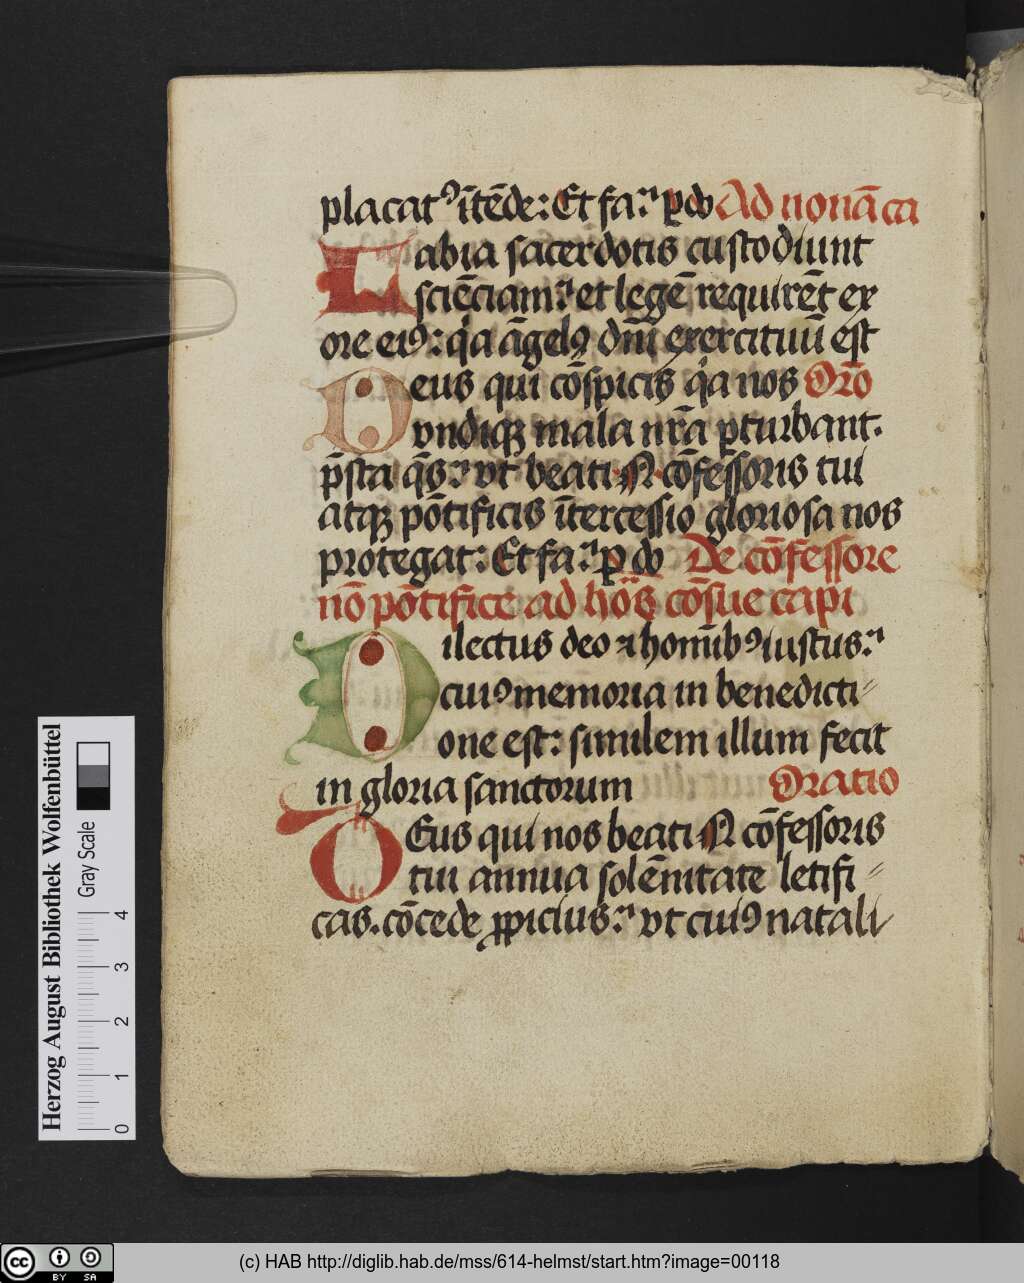 placatꝰ ītēde: Et fa.᷑ ꝑ do Ad nonā ca
Labia sacerdotis custodiunt
sciēciam:᷑ et legē requirēt ex
ore eiꝰ: q̇a āgelꝰ dnī exercituū est
Deus qui cōspicis q̇a nos Orō
vndiqꝫ mala nr̄a ꝑturbant.
p̄sta q̄s:᷑ vt beati .N. cōfessoris tui
atqꝫ pōtificis ītercessio gloriosa nos
protegat: Et fa.᷑ ꝑ do De cōfessore
nō pōtifice ad hōs cōsue capi
Dilectus deo ⁊ homībꝰ iustus:᷑
cuiꝰ memoria in benedicti⸗
one est: similem illum fecit
in gloria sanctorum Oratio
DEus qui nos beati .N. cōfessoris
tui annua solēnitate letifi⸗
cas. cōcede ꝓpicius:᷑ vt cuiꝰ natali
Herzog August Bibliothek Wolfenbüttel
Gray Scale
0 1 2 3 4
cc BY SA
(c) HAB http://diglib.hab.de/mss/614-helmst/start.htm?image=00118